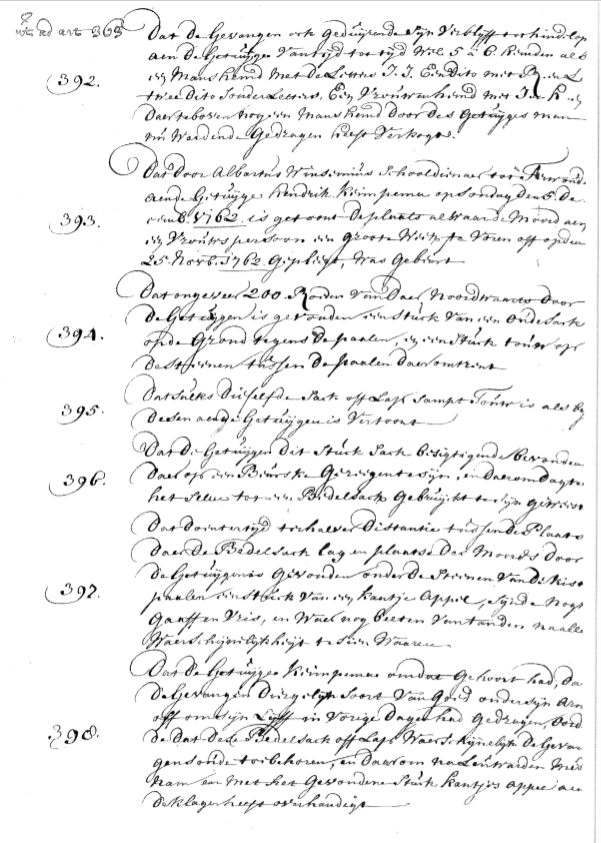 ad art 363 Dat de Gevangen ook geduirende sijn verblijf
aen de Getuige van tijd tot tijd wel 5 a 6. Hemden als
392. een Manshemd met de Letters I. I. Een Dito met
twee Dito sonder Letters, Een Vrouwenhemd met
daerteboven nog een Manshemd door des Getuiges man
nu werdende Gedragen heeft verkogt.
Dat door Albartus Winsemius Schooldienaer tot
aen de Getuige Hendrik Kempema op Sondag den 5. De
393. cemb. 1762. is getoont de plaats alwaar de Moord aen
een Vrouwspersoon een groote week te voren off op den
25. Novb. 1762. Gepleegt, was Gebeurt
Dat ongeveer 200. Roeden van daer Noordwaarts door
de Getuigen is gevonden een stuck van een oude sack
394. op de Grond tegens de paalen, en een stuck touw op
de steenen tussen de paalen daeromtrent
Dat sulks deselfde sack off Lap sampt Touw is als bij
395. desen aen de Getuigen is vertoont
Dat de Getuigen dit stuck sack besigtigende bevonden
396. daer op een Geregen te sijn, en daerom dagten
het selve tot een Bedelsack Gebruickt te sijn geweest
Dat doentertijd ter halver Distantie tussen de Plaats
daer de Bedelsack lag en plaatse des Moords door
de Getuigenis Gevonden onder de Steenen van de kist
397. paalen een stuck van een kantje Appel, sijnde nog
Gaaff en Vris, en waer nog beeten van tanden na alle
Waerschijnelijkheijt te sien waaren.
Dat de Getuige Kempema omdat Gehoort had, da
de Gevangen Diergelijk soort van Goed onder sijn Arm
off om sijn Lijff in vorige dagen had Gedragen, Oord
398. de dat dese Bedelsack off Lap Waerschijnelijk de Gevan
gen soude toebehoren, en daerom na Leuwarden mee
nam en met het Gevondene stuck kantjes appel aen
de klager heeft overhandigt